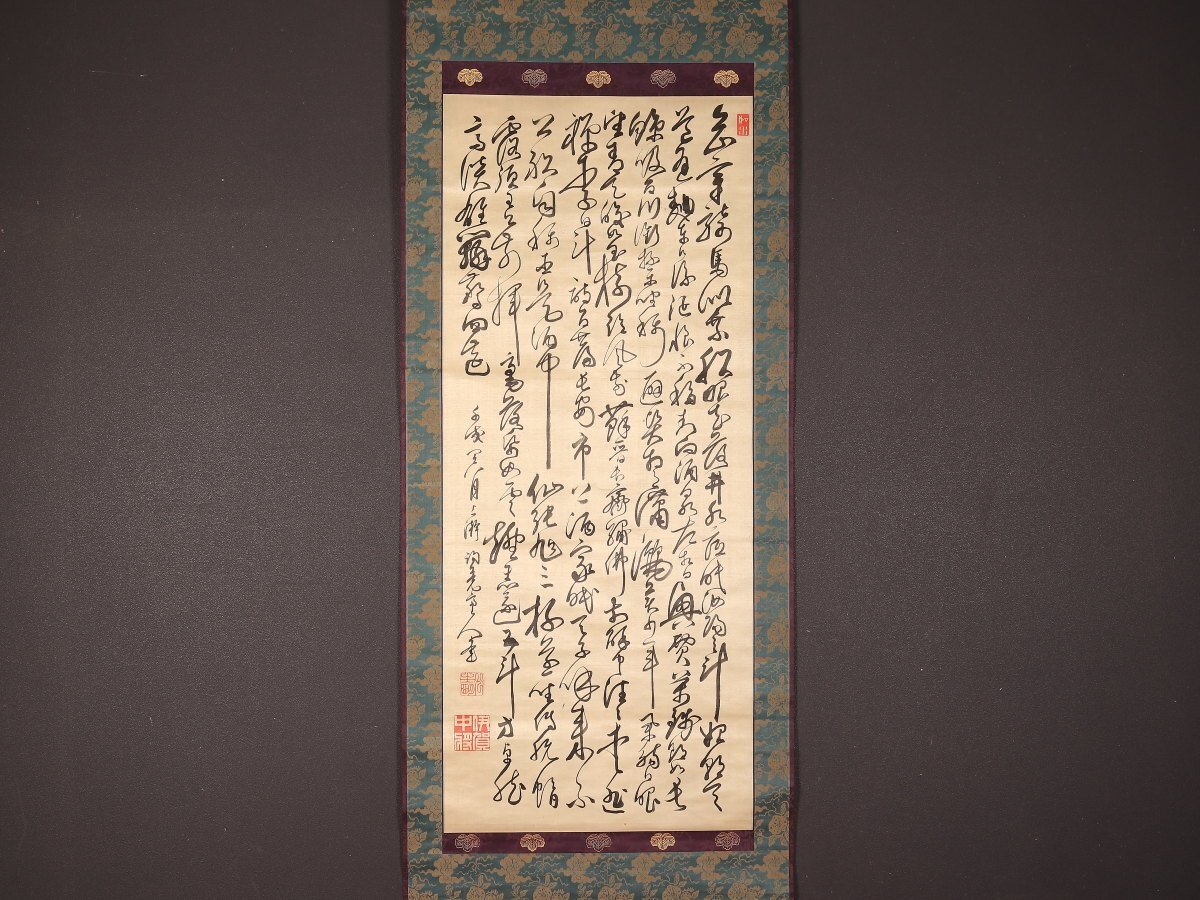 知章騎馬似乘船眼花落井水底眠汝陽三斗始朝天
道逢麴車口流涎恨不移封向酒泉左相日興費萬錢飲如長
鯨吸百川銜杯樂聖稱避賢宗之瀟灑美少年舉觴白眼
望青天皎如玉樹臨風前蘇晉長齋繡佛前醉中往往愛逃
禪李白一斗詩百篇長安市上酒家眠天子呼來不
上船自稱臣是酒中仙張旭三杯草聖傳脫帽
露頂王公前揮毫落紙如雲煙焦遂五斗方卓然
高談雄辯驚四筵
壬戌八月上澣主人書
伊賀中將